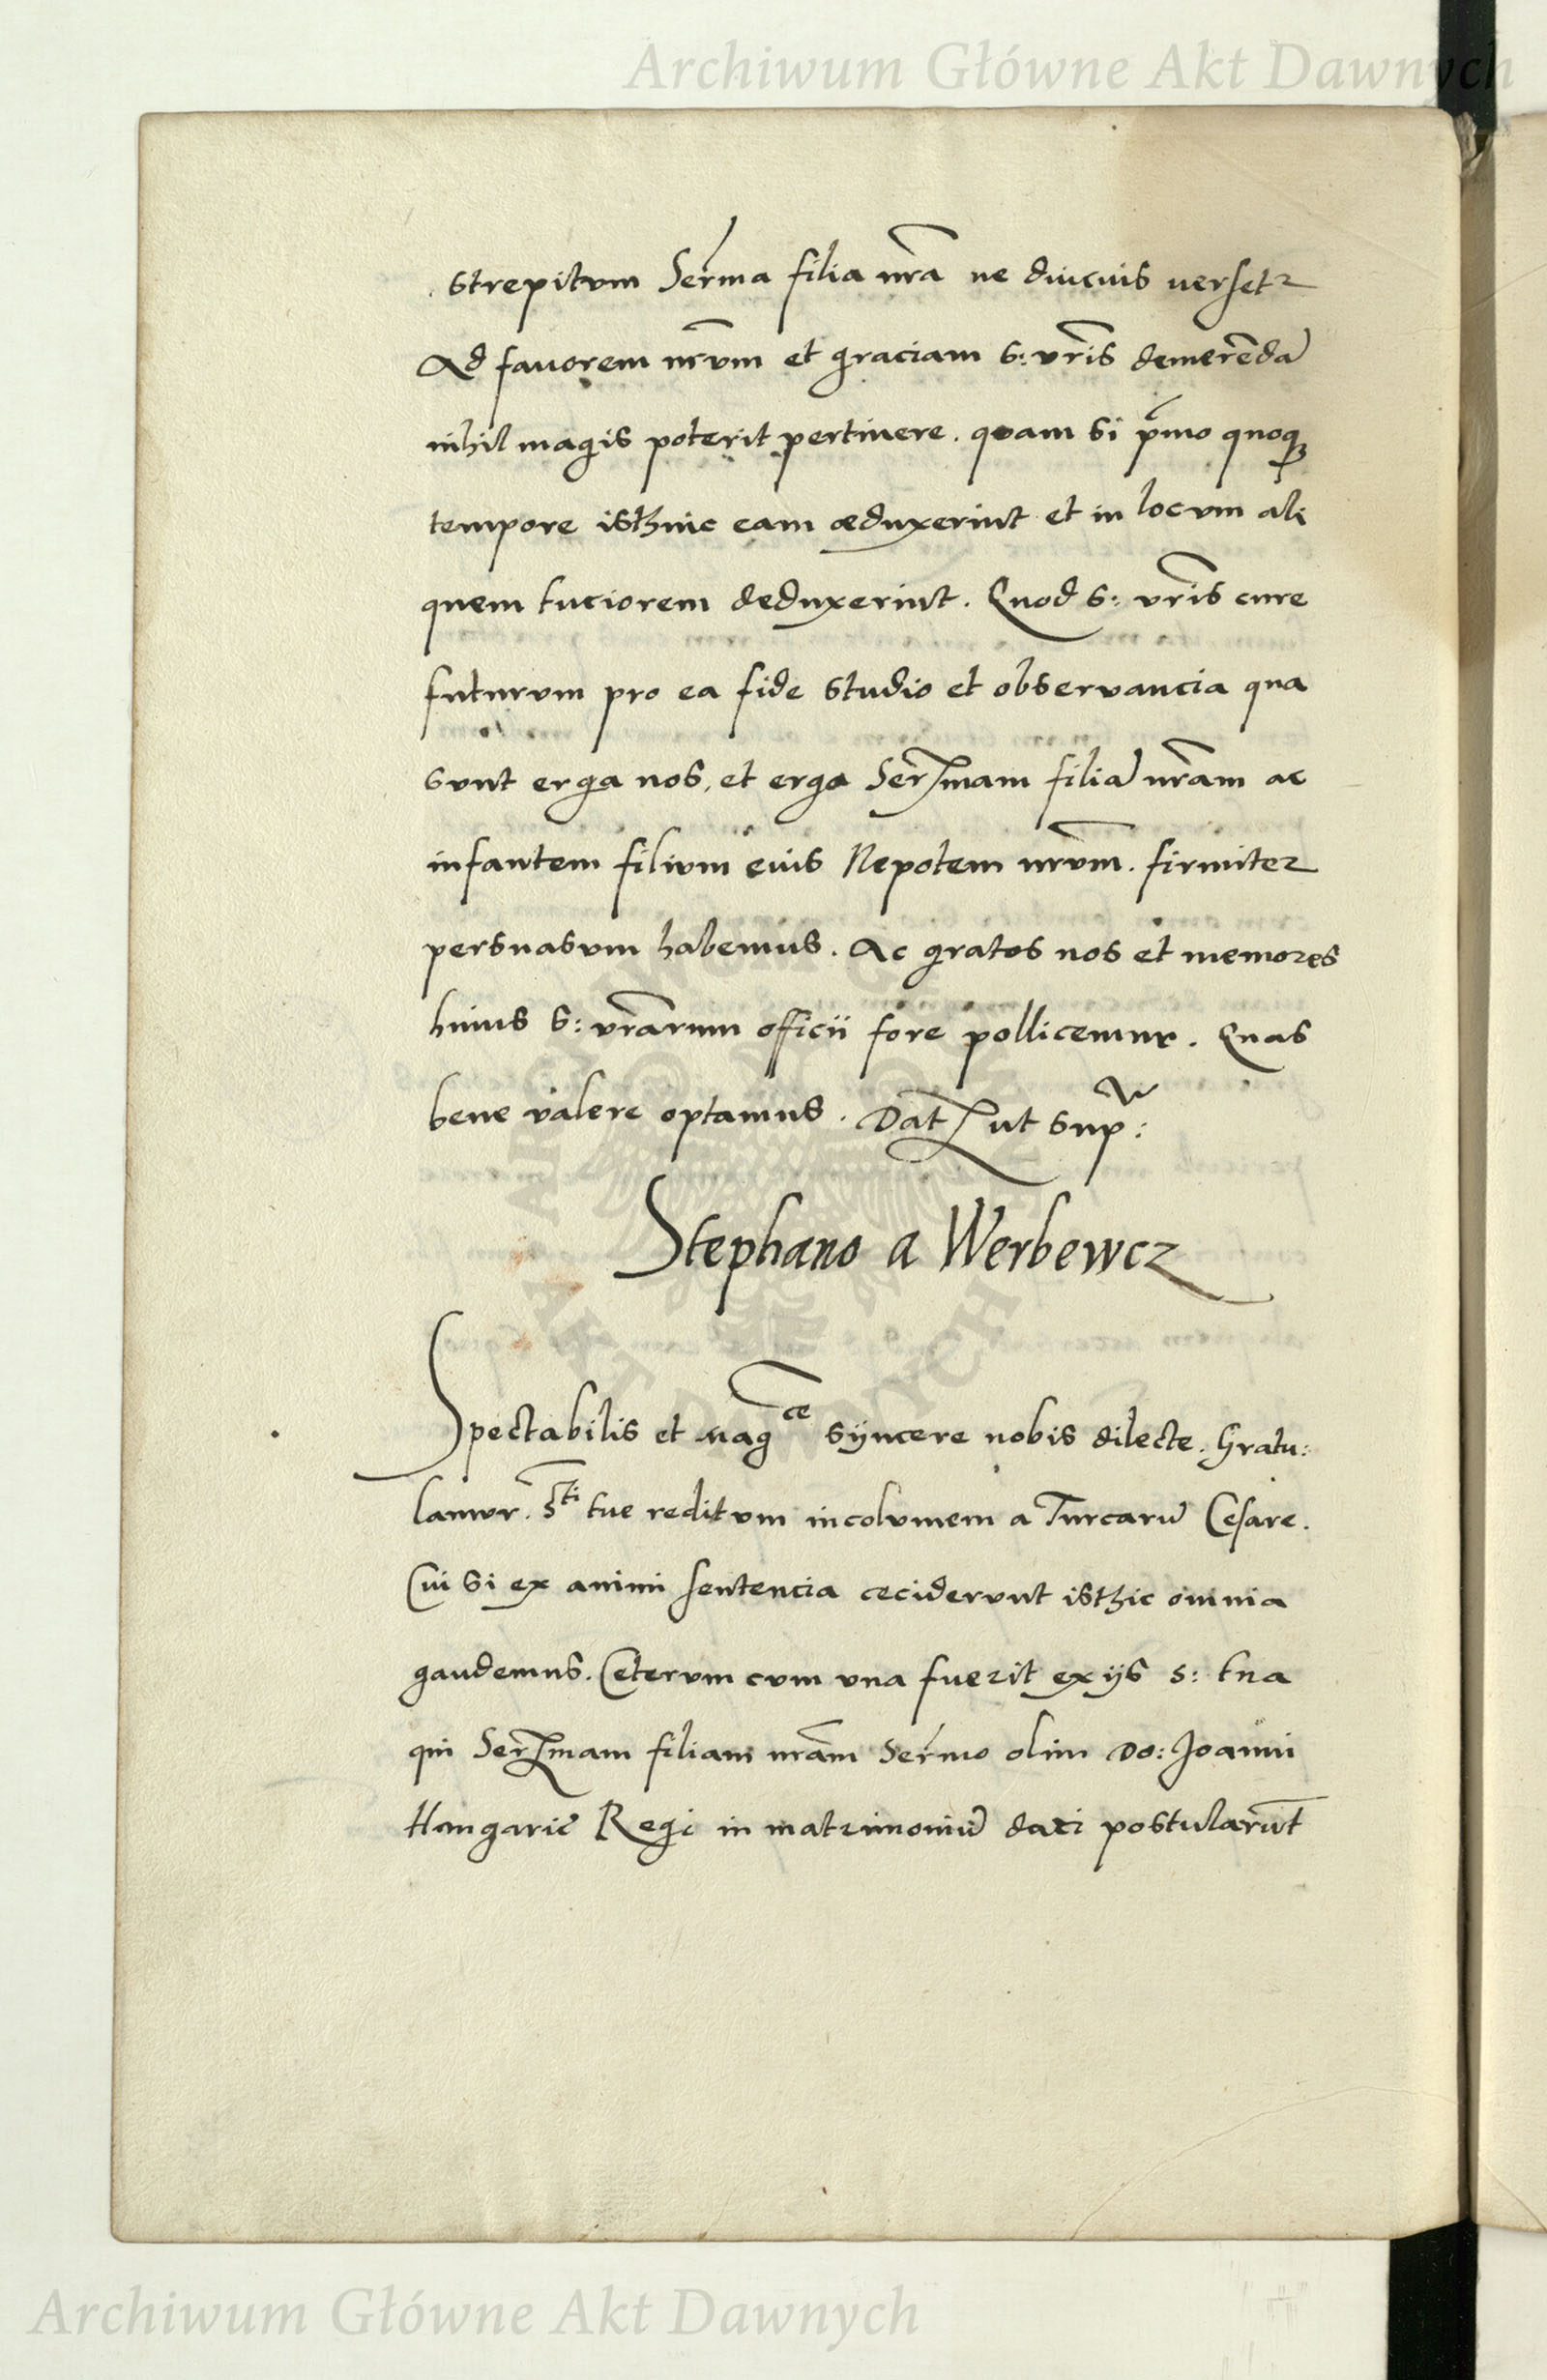 Archiwum Główne Akt Dawnych
strepitum Serma filia nra ne diucius versetr
Ad fauorem nrum et graciam s: vris demerenda
nihil magis poterit pertinere. quam si pmo quoqz
tempore isthinc eam æduxerint et in locum ali
quem tuciorem deduxerint. Quod s: vris cure
futurum pro ea fide studio et observancia qua
sunt erga nos, et erga Sermam filia nram ac
infantem filium eius Nepotem nrum. firmiter
persuasum habemus. Ac gratos nos et memores
huius s: vrarum officii fore pollicemur. Quas
bene valere optamus. Dat ut sup:
Stephano a Werbewcz
Spectabilis et Magce syncere nobis dilecte. Gratu:
lamur. Sti tue reditum incolumem a Turcaru Cesare.
Cui si ex animi sentencia ceciderunt isthic omnia
gaudemus. Ceterum cum una fuerit ex ijs s: tua
qui Sermam filiam nram Sermo olim Do: Joanni
Hungarie Regi in matrimoniu dari postularunt
Archiwum Główne Akt Dawnych